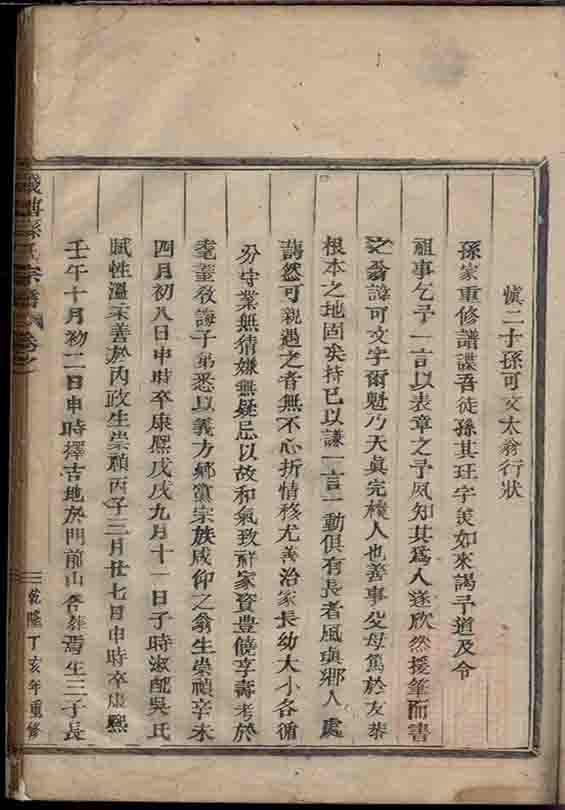 慎二十孫可文太翁行狀
孫家重修譜諜吾徒孫其玨字炎如來謁予道及令
祖事乞予一言以表章之予夙知其為人遂欣然援筆而書
之翁諱可文字爾魁乃天真完樸人也善事父母篤於友恭
根本之地固矣持己以謙一言一動俱有長者風與鄉人處
藹然可親遇之者無不心折情移尤善治家長幼大小各循
分守業無猜嫌無疑忌以故和氣致祥家資豊饒享壽考於
耄耋教誨子弟悉以義方鄉黨宗族咸仰之翁生崇禎辛未
四月初八日申時卒康熙戊戌九月十一日子時淑配吳氏
賦性溫柔善於內政生崇禎丙子三月廿七日申時卒康熙
壬午十月初二日申時擇吉地於門前山合葬焉生三子長
孫氏宗譜 卷之
乾隆丁亥年重修